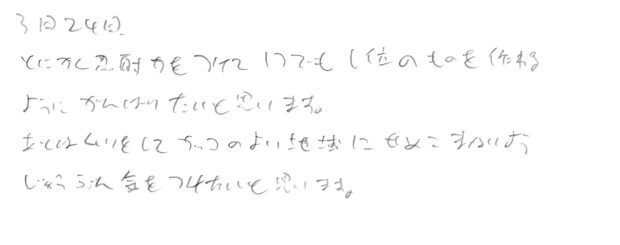 3月24日
とにかく忍耐力をつけて1つでも1位のものを作れる
ようにがんばりたいと思います。
あとはムリをして かつつよい地域にせめこまないよう
じゅうぶん気をつけたいと思います。